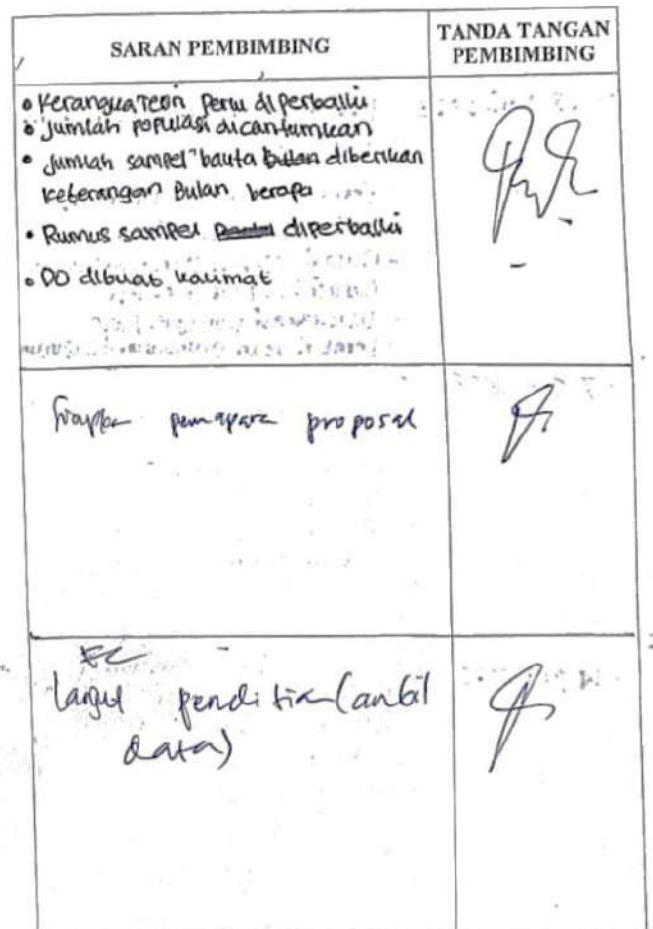 SARAN PEMBIMBING
TANDA TANGAN
PEMBIMBING
• Kerangka Teori perlu diperbaiki
• Jumlah populasi dicantumkan
• Jumlah sampel bauta bulan diberikan
keterangan Bulan berapa
• Rumus sampel diperbaiki
• DO dibuat kalimat
proposal
Lanjut penelitian (ambil
data)